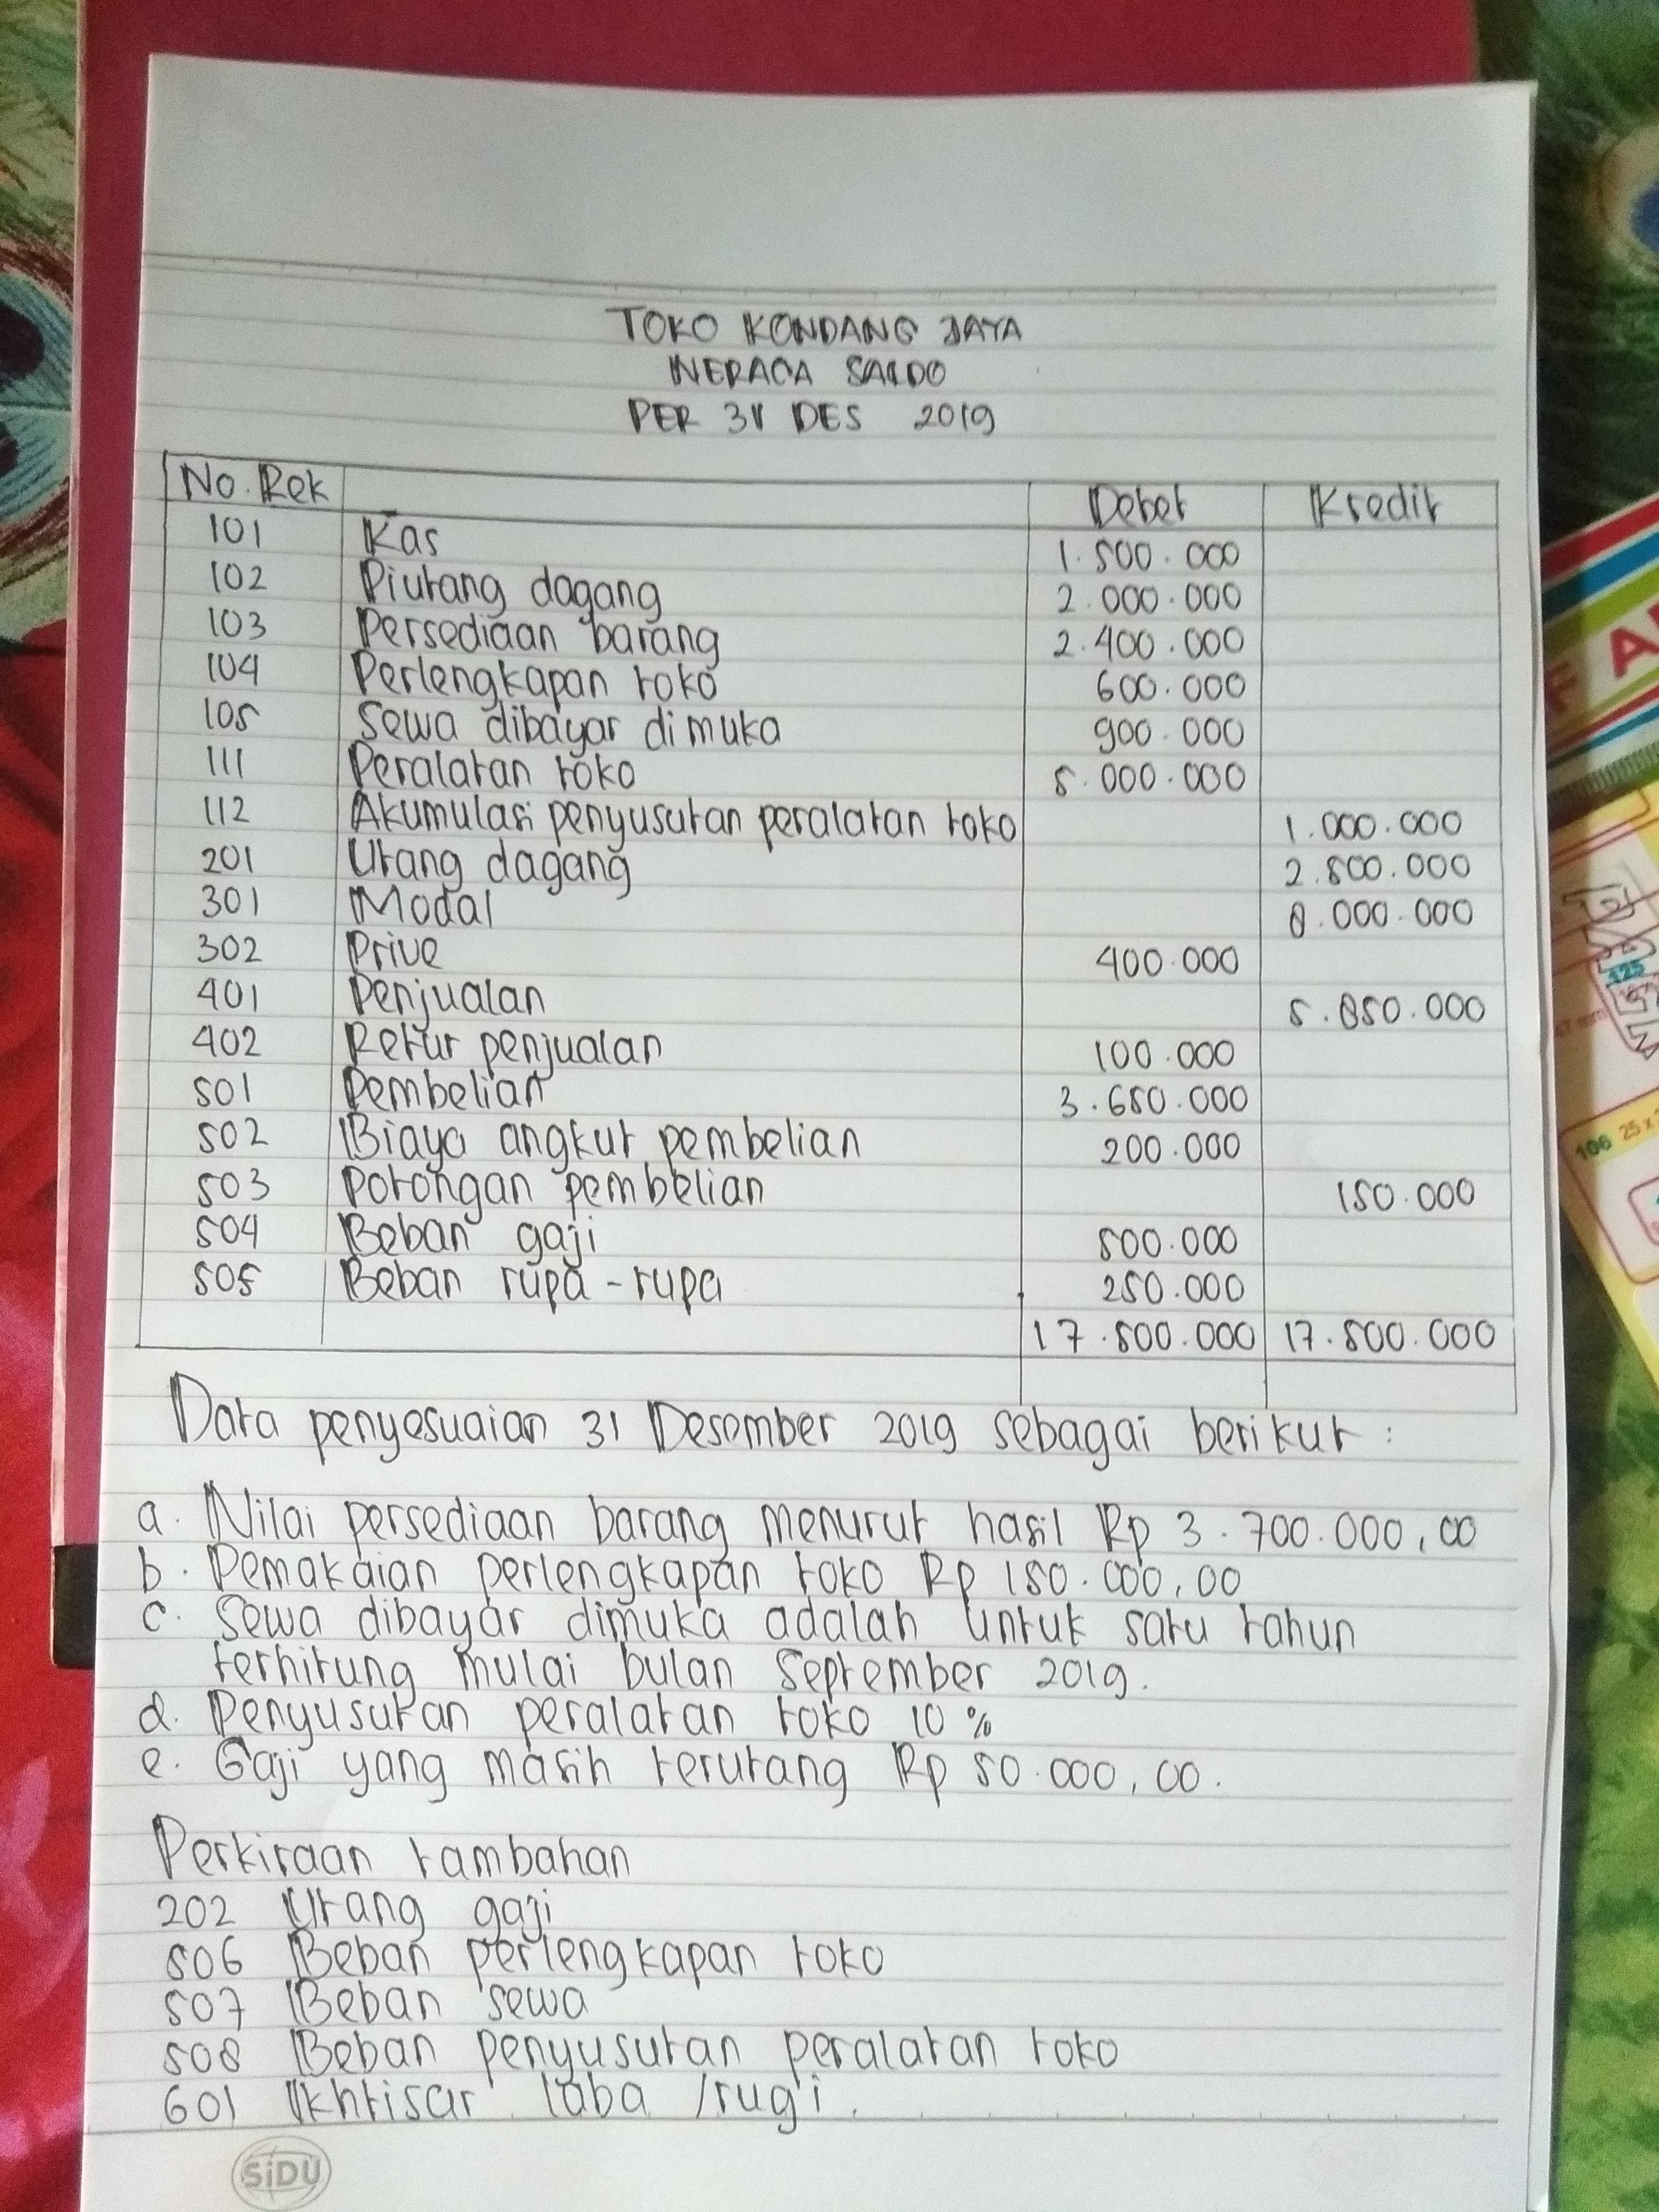 TOKO KONDANG JAYA
NERACA SALDO
PER 31 DES 2019
No. Rek Debet Kredit
101 Kas 1.500.000
102 Piutang dagang 2.000.000
103 Persediaan barang 2.400.000
104 Perlengkapan toko 600.000
105 Sewa dibayar dimuka 900.000
111 Peralatan toko 5.000.000
112 Akumulasi penyusutan peralatan toko 1.000.000
201 Utang dagang 2.500.000
301 Modal 8.000.000
302 Prive 400.000
401 Penjualan 5.850.000
402 Retur penjualan 100.000
501 Pembelian 3.650.000
502 Biaya angkut pembelian 200.000
503 Potongan pembelian 150.000
504 Beban gaji 500.000
505 Beban rupa-rupa 250.000
17.500.000 17.500.000
Data penyesuaian 31 Desember 2019 sebagai berikut :
a. Nilai persediaan barang menurut hasil Rp 3.700.000,00
b. Pemakaian perlengkapan toko Rp 150.000,00
c. Sewa dibayar dimuka adalah untuk satu tahun
terhitung mulai bulan September 2019.
d. Penyusutan peralatan toko 10 %
e. Gaji yang masih terutang Rp 50.000,00.
Perkiraan tambahan
202 Utang gaji
506 Beban perlengkapan toko
507 Beban sewa
508 Beban penyusutan peralatan toko
601 Ikhtisar laba /rugi.
SiDU
125
106 25x